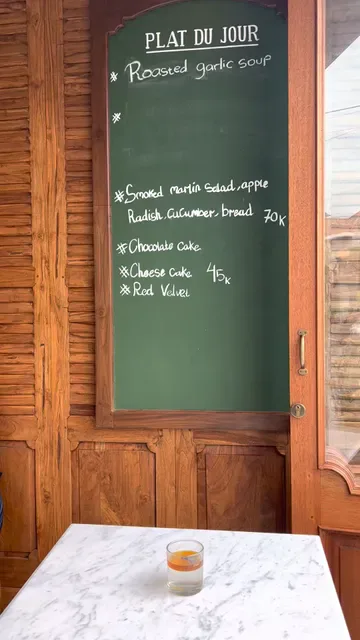 PLAT DU JOUR
* Roasted garlic soup
*
* Smoked marlin Salad, apple
Radish, CuCumber, bread 70K
* Chocolate Cake
* Cheese Cake 45K
* Red Velvet